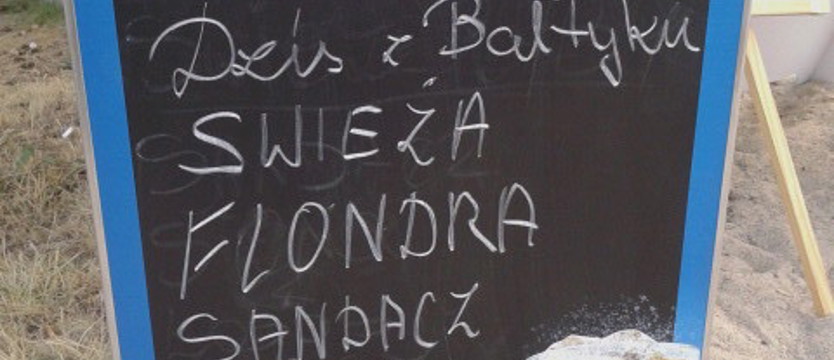 Dziś z Bałtyku
SWIEŻA
FLONDRA
SANDACZ